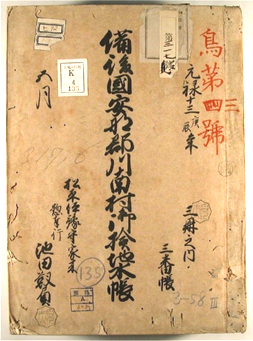 鳥第四號
三
元禄十三庚辰年
三冊之内
三番帳
備後國安那郡川南村御撿地水帳
六月
松平伊豫守家来
惣奉行
池田靱負
K
4
135
135
3-58 III